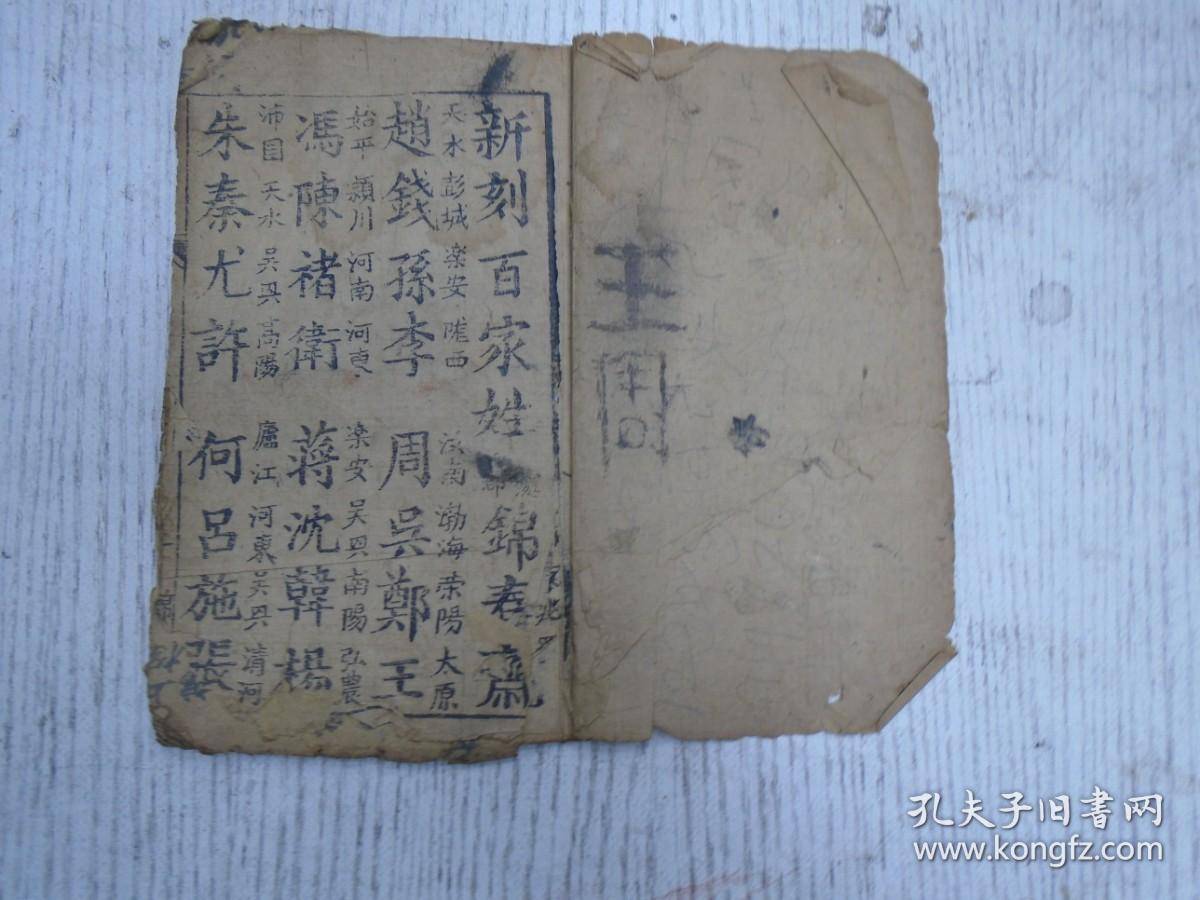 新刻百家姓 錦春齋
天水 彭城 楽安 隴西 汝南 渤海 荣陽 太原
趙錢孫李 周吳鄭王
始平 頴川 河南 河東 楽安 吳興 南陽 弘農
馮陳禇衛 蔣沈韓楊
沛囯 天水 吳興 高陽 廬江 河東 吳興 清河
朱秦尤許 何呂施張
王
孔夫子旧書网
www.kongfz.com